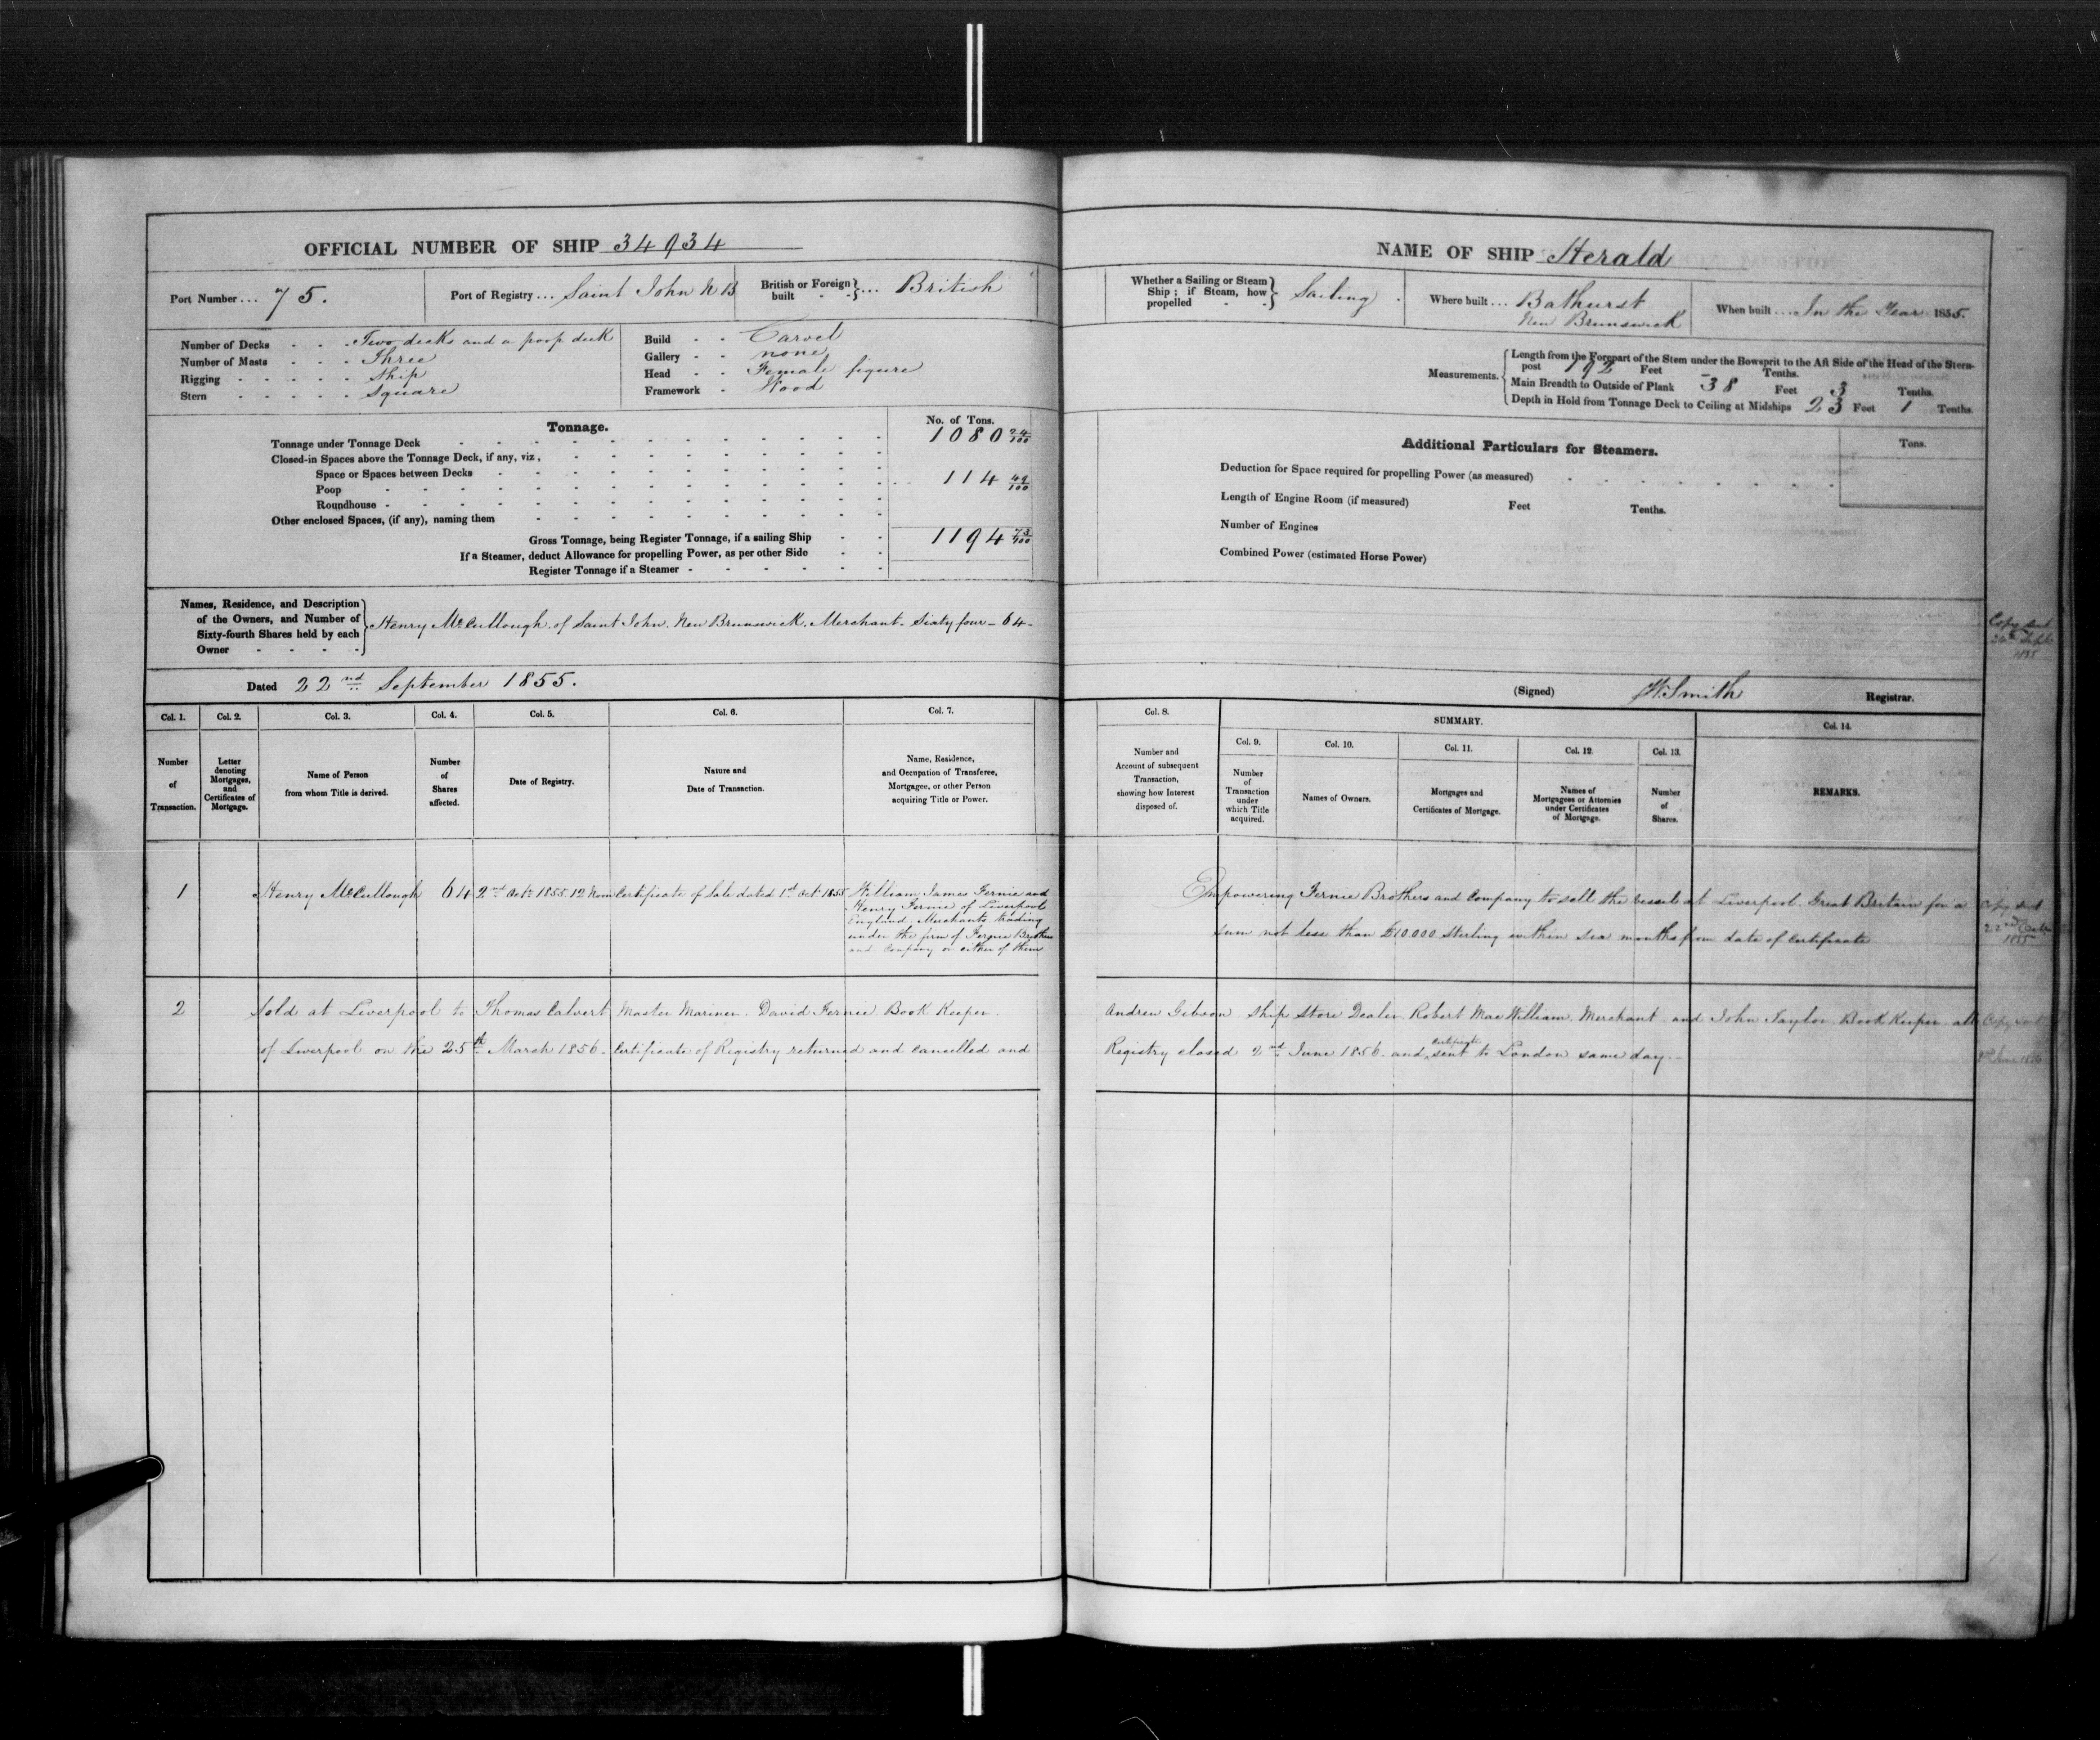 OFFICIAL NUMBER OF SHIP 34934
Port Number ... 75.
Port of Registry ... Saint John N B
British or Foreign built - - } ... British
Number of Decks - - - Two decks and a poop deck
Number of Masts - - - Three
Rigging - - - - - Ship
Stern - - - - - Square
Build - - Carvel
Gallery - - none
Head - - Female figure
Framework - Wood
Tonnage.
No. of Tons.
Tonnage under Tonnage Deck 1080 24/100
Closed-in Spaces above the Tonnage Deck, if any, viz,
Space or Spaces between Decks 114 49/100
Poop
Roundhouse
Other enclosed Spaces, (if any), naming them
Gross Tonnage, being Register Tonnage, if a sailing Ship 1194 73/100
If a Steamer, deduct Allowance for propelling Power, as per other Side
Register Tonnage if a Steamer
Names, Residence, and Description
of the Owners, and Number of
Sixty-fourth Shares held by each
Owner - - - -
Henry McCullough. of Saint John. New Brunswick. Merchant - Sixty four - 64 -
Dated 22nd September 1855.
Col. 1.
Col. 2.
Col. 3.
Col. 4.
Col. 5.
Col. 6.
Col. 7.
Number
of
Transaction.
Letter
denoting
Mortgages,
and
Certificates of
Mortgage.
Name of Person
from whom Title is derived.
Number
of
Shares
affected.
Date of Registry.
Nature and
Date of Transaction.
Name, Residence,
and Occupation of Transferee,
Mortgagee, or other Person
acquiring Title or Power.
1
Henry McCullough
64
2nd Octr 1855 12 Noon
Certificate of Sale dated 1st Octr 1855
William James Fernie and
Henry Fernie of Liverpool
England, Merchants, trading
under the firm of Fernie Brothers
and Company or either of them
2
Sold at Liverpool to Thomas Calvert Master Mariner. David Fernie Book Keeper.
of Liverpool on the 25th March 1856 - Certificate of Registry returned and cancelled and
NAME OF SHIP Herald
Whether a Sailing or Steam
Ship; if Steam, how
propelled - - } Sailing
Where built ... Bathurst
New Brunswick
When built ... In the Year 1855.
Measurements.
Length from the Forepart of the Stem under the Bowsprit to the Aft Side of the Head of the Stern-
post 192 Feet - Tenths.
Main Breadth to Outside of Plank 38 Feet 3 Tenths.
Depth in Hold from Tonnage Deck to Ceiling at Midships 23 Feet 1 Tenths.
Additional Particulars for Steamers.
Tons.
Deduction for Space required for propelling Power (as measured)
Length of Engine Room (if measured) Feet Tenths.
Number of Engines
Combined Power (estimated Horse Power)
Copy sent
Sept
1855
(Signed) W. Smith Registrar.
Col. 8.
SUMMARY.
Col. 9.
Col. 10.
Col. 11.
Col. 12.
Col. 13.
Col. 14.
Number and
Account of subsequent
Transaction,
showing how Interest
disposed of.
Number
of
Transaction
under
which Title
acquired.
Names of Owners.
Mortgages and
Certificates of Mortgage.
Names of
Mortgagees or Attornies
under Certificates
of Mortgage.
Number
of
Shares.
REMARKS.
Empowering Fernie Brothers and Company to sell the vessel at Liverpool. Great Britain for a
sum not less than £10.000 Sterling within six months from date of Certificate
Copy sent
22nd Octr
1855
Andrew Gibson Ship Store Dealer. Robert MacWilliam. Merchant and John Taylor. Book Keeper - all
Registry closed 2nd June 1856 - and certificate sent to London same day -
Copy sent
2nd June 1856